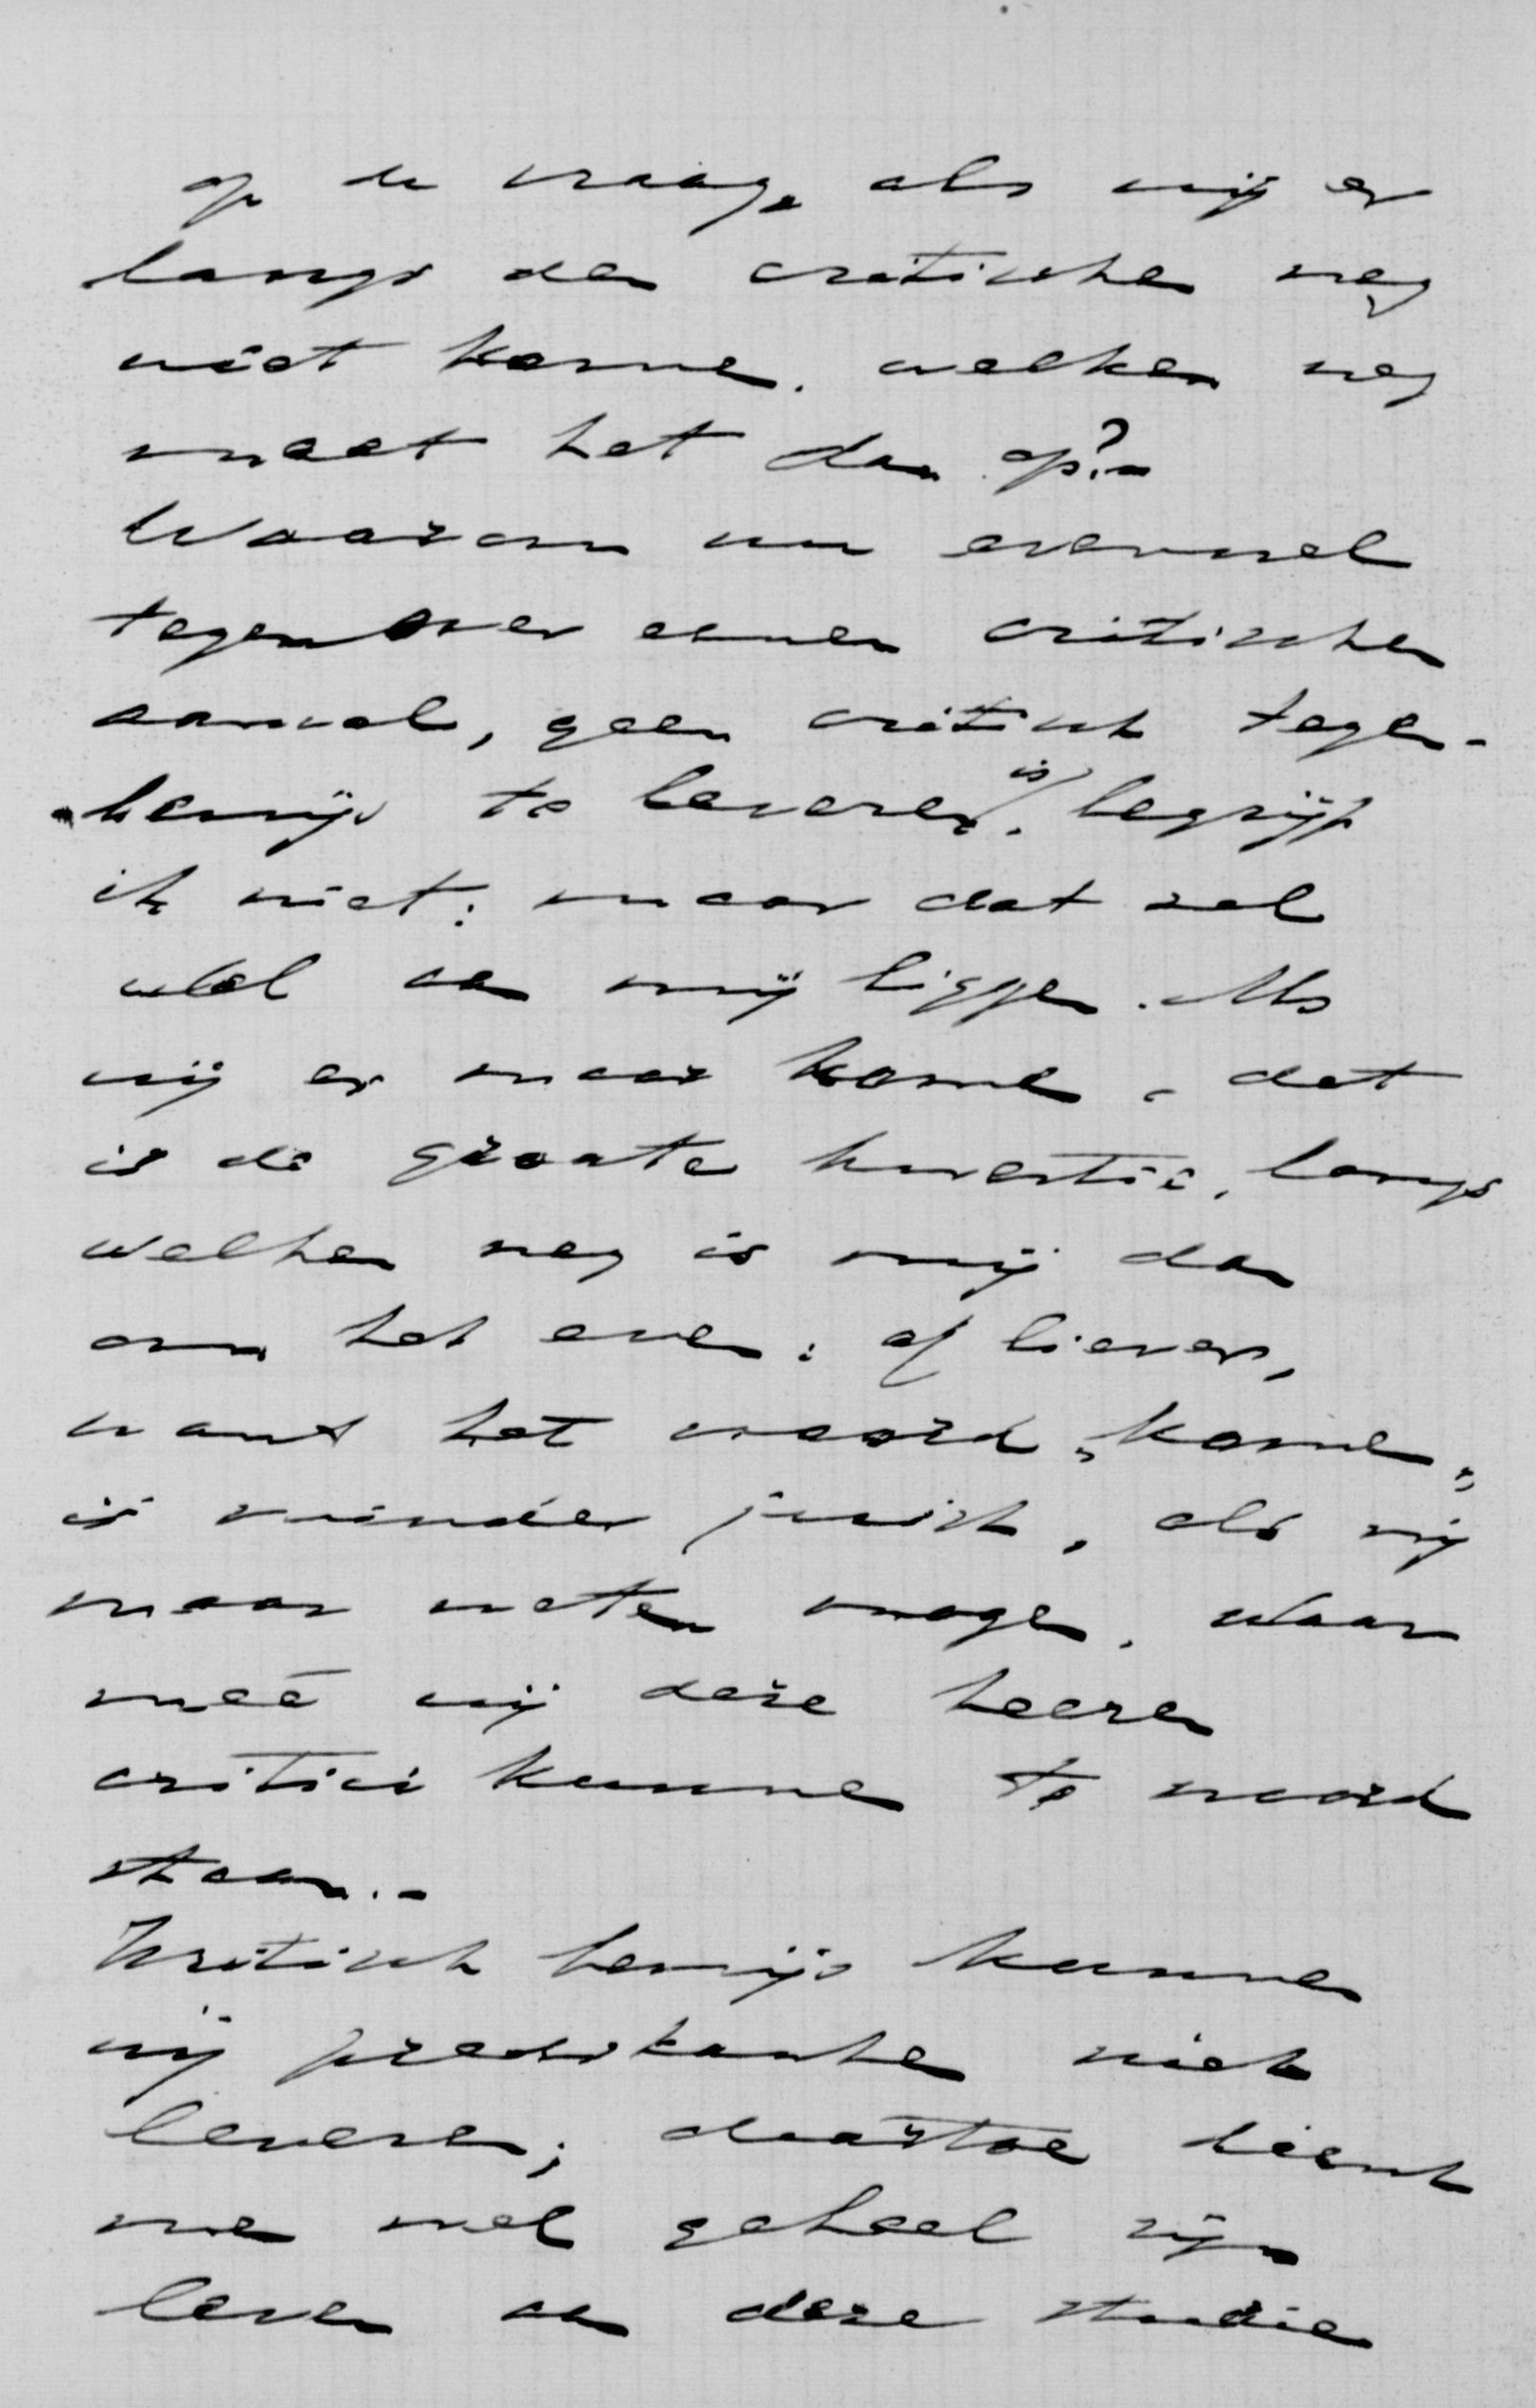 op de vraag, als wij er
langs den critischen weg
niet komen, welken weg
moet het dan op?–
Waarom nu evenwel
tegenover eenen critischen
aanval, geen critisch tegen-
bewijs te leveren is, begrijp
ik niet; maar dat zal
wel aan mij liggen. Als
wij er maar komen, dat
is de groote kwestie, langs
welken weg is mij dan
om het even; of liever,
want het woord „komen„
is minder juist, als wij
maar weten mogen, waar
meê wij deze heeren
critici kunnen te woord
staan.–
Kritisch bewijs kunnen
wij predikanten niet
leveren; daartoe dient
men wel geheel zijn
leven aan deze studie